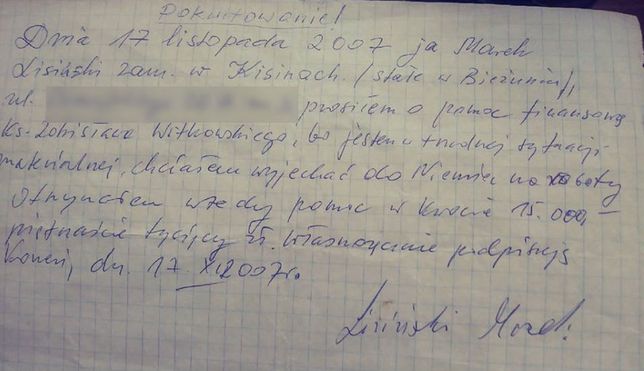 Pokwitowanie!
Dnia 17 listopada 2007 ja Marek
Lisiński zam. w Kisinach /stałe w Bieżuniu/,
ul. prosiłem o pomoc finansową
Ks. Zdzisława Witkowskiego, bo jestem w trudnej sytuacji
materialnej, chciałem wyjechać do Niemiec na roboty
Otrzymałem wtedy pomoc w kwocie 15.000,-
piętnaście tysięcy zł. Własnoręcznie podpisuję
dn. 17.XI.2007r.
Lisiński Marek